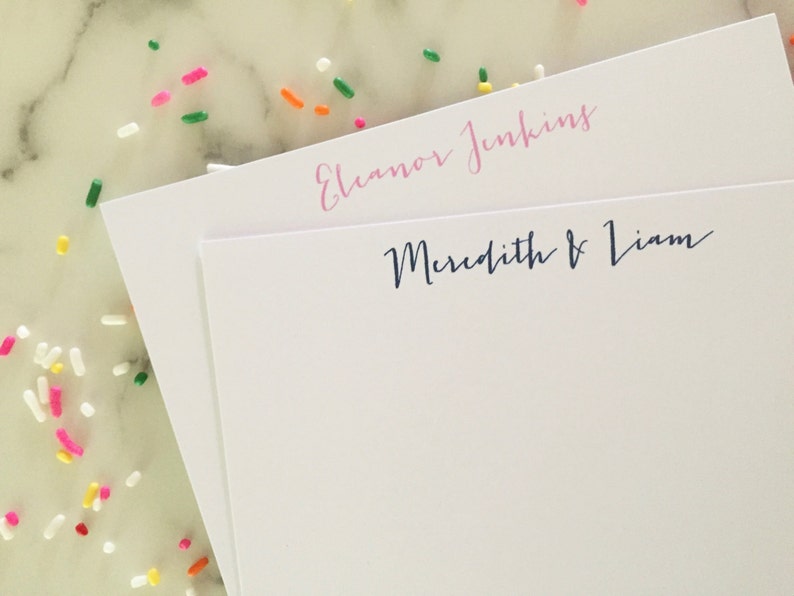 Eleanor Jenkins
Meredith & Liam